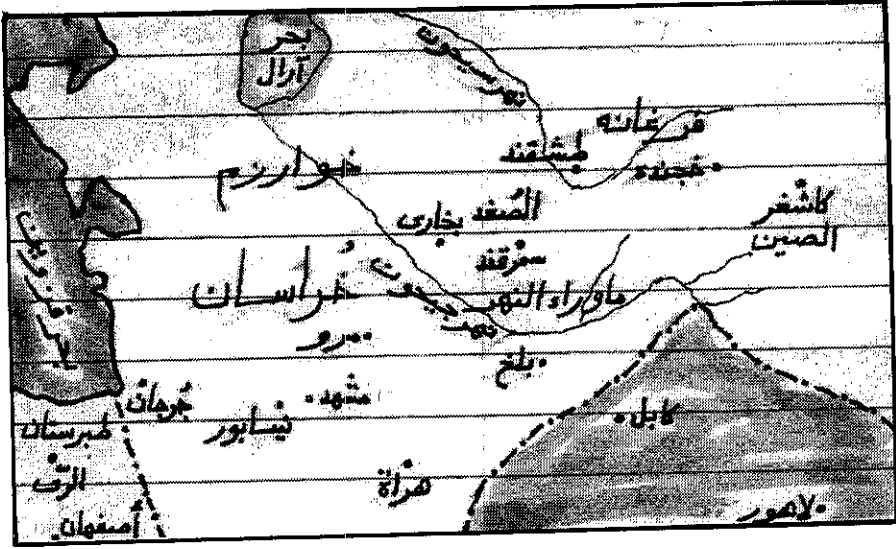 بحر
آرال
نهر سيحون
فرغانه
طشقند
خجنده
خوارزم
الصُغد
بخارى
كاشغر
الصين
سمرقند
بحر قزوين
خُراسان
نهر جيحون
ماوراء النهر
مرو
بلخ
مشهد
جُرجان
نيسابور
كابل
طبرستان
الرّى
هراة
أصفهان
لاهور